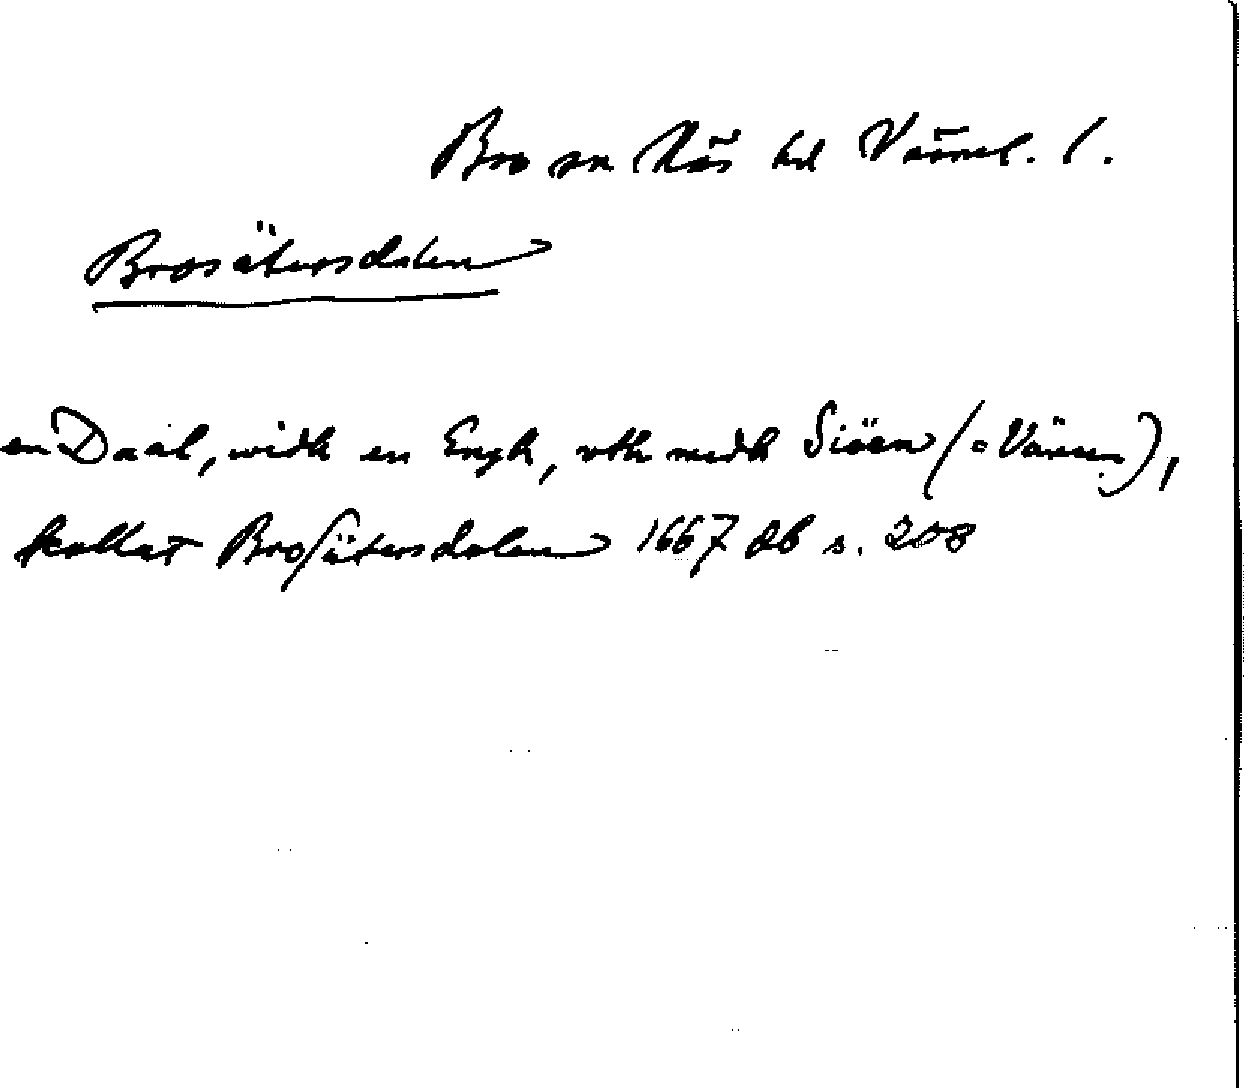 Bro sn Näs hd Värml. l.
Brosätersdalen
en Daal, widh en Engh, vth medh Siöen (= Vänern),
kallat Broſätersdalen 1667 db s. 208